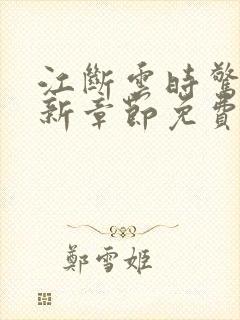 江斷雲時驚
新章節免費
鄭雪姬